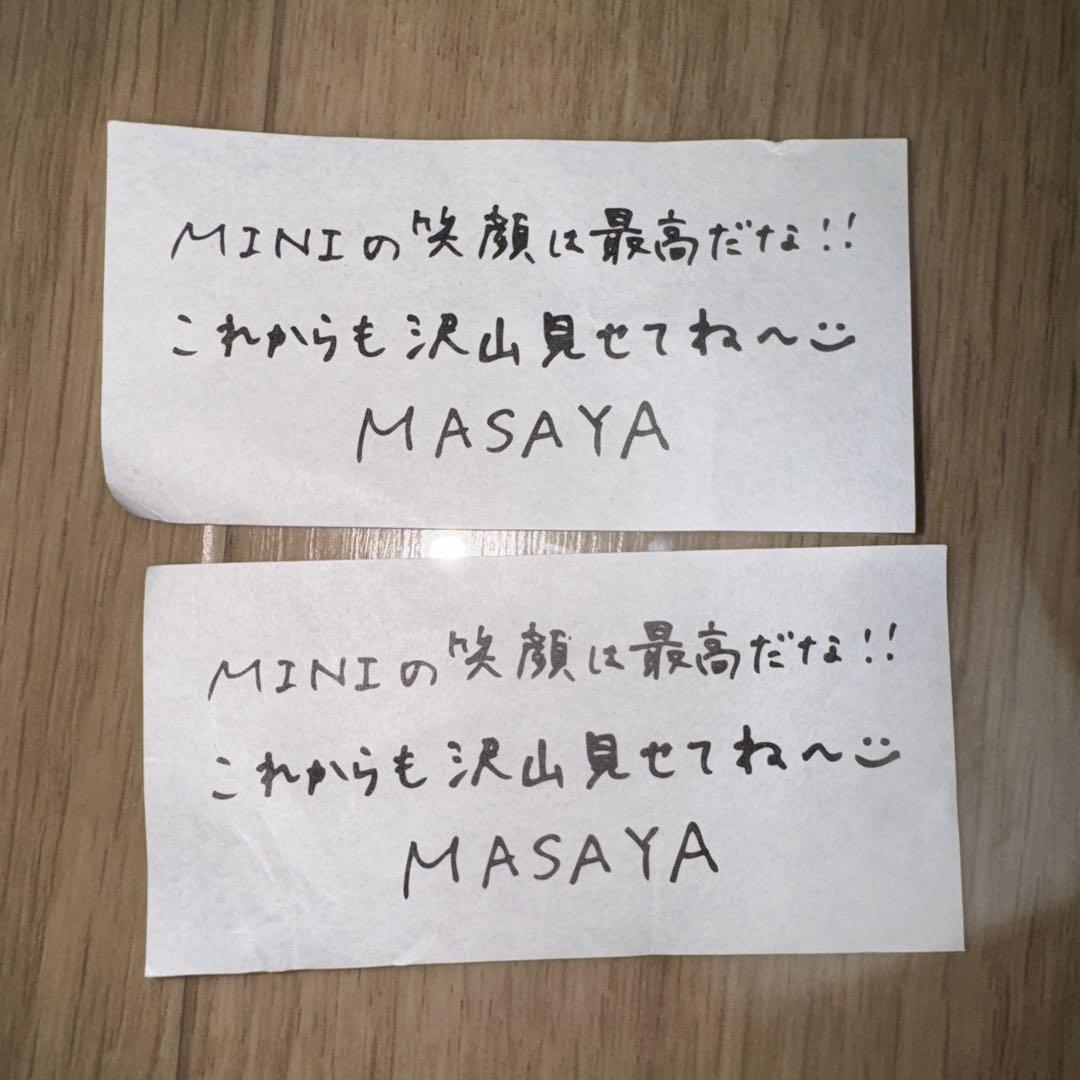 MINIの笑顔は最高だな!!
これからも沢山見せてね〜
MASAYA
MINIの笑顔は最高だな!!
これからも沢山見せてね〜
MASAYA